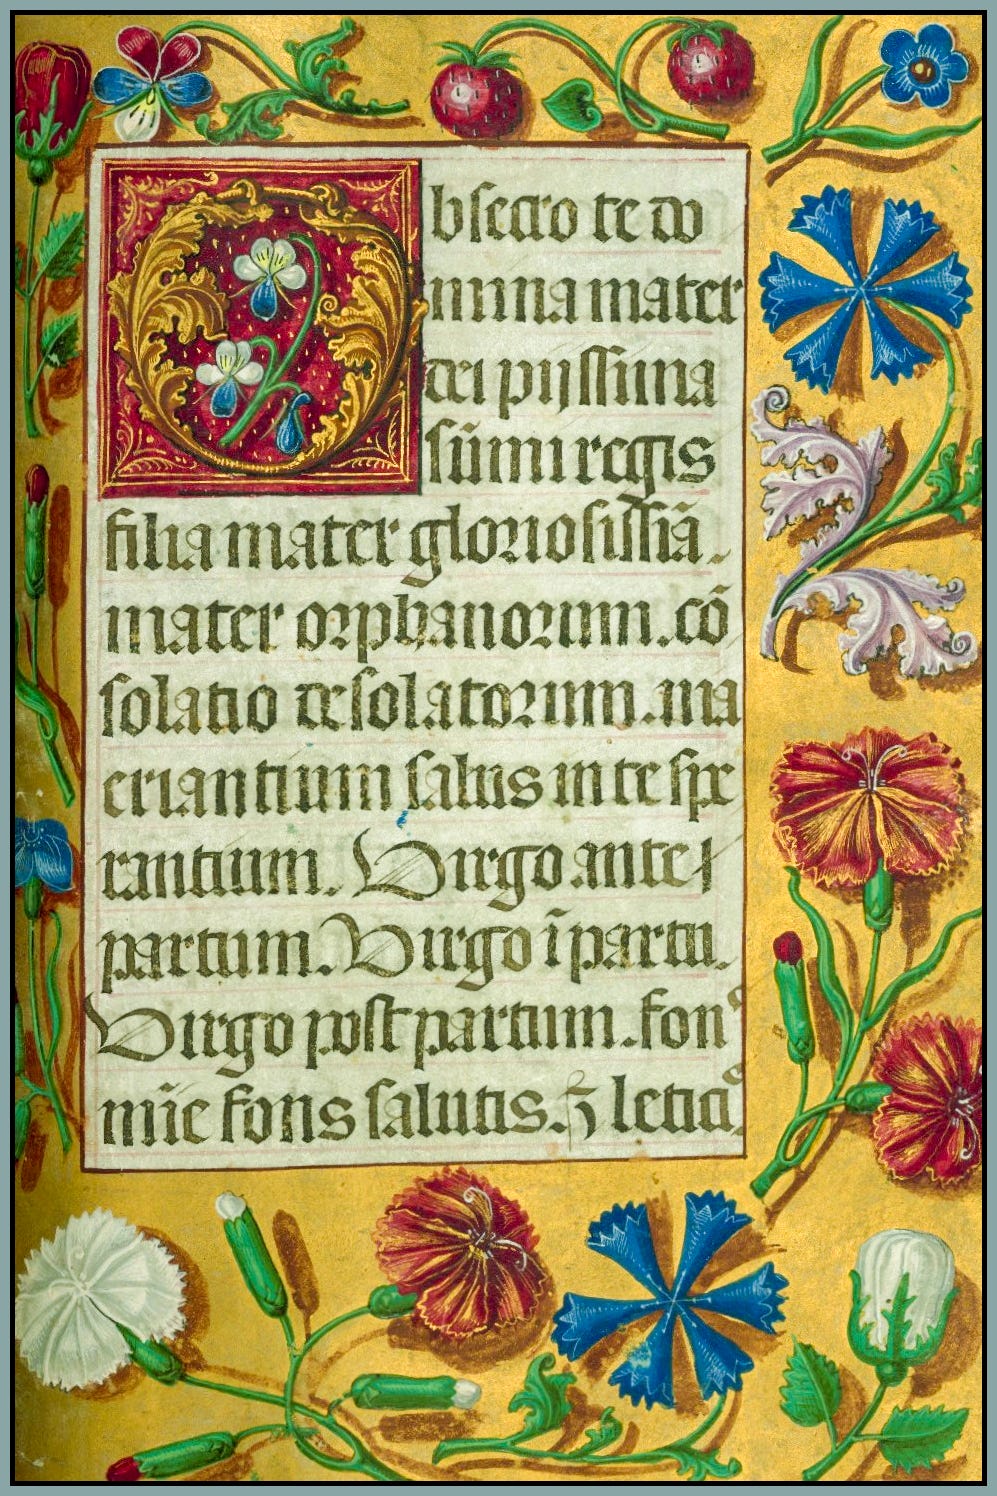 Obsecro te do
mina mater
dei pijssima
sūmi regis
filia mater gloriosissiā.
mater orphanorum. cō
solatio desolatorum. ma
eriantium salus in te spe
rantium. Virgo ante
partum. Virgo ī partu.
Virgo post partum. fons
mīe fons salutis. ⁊ letici